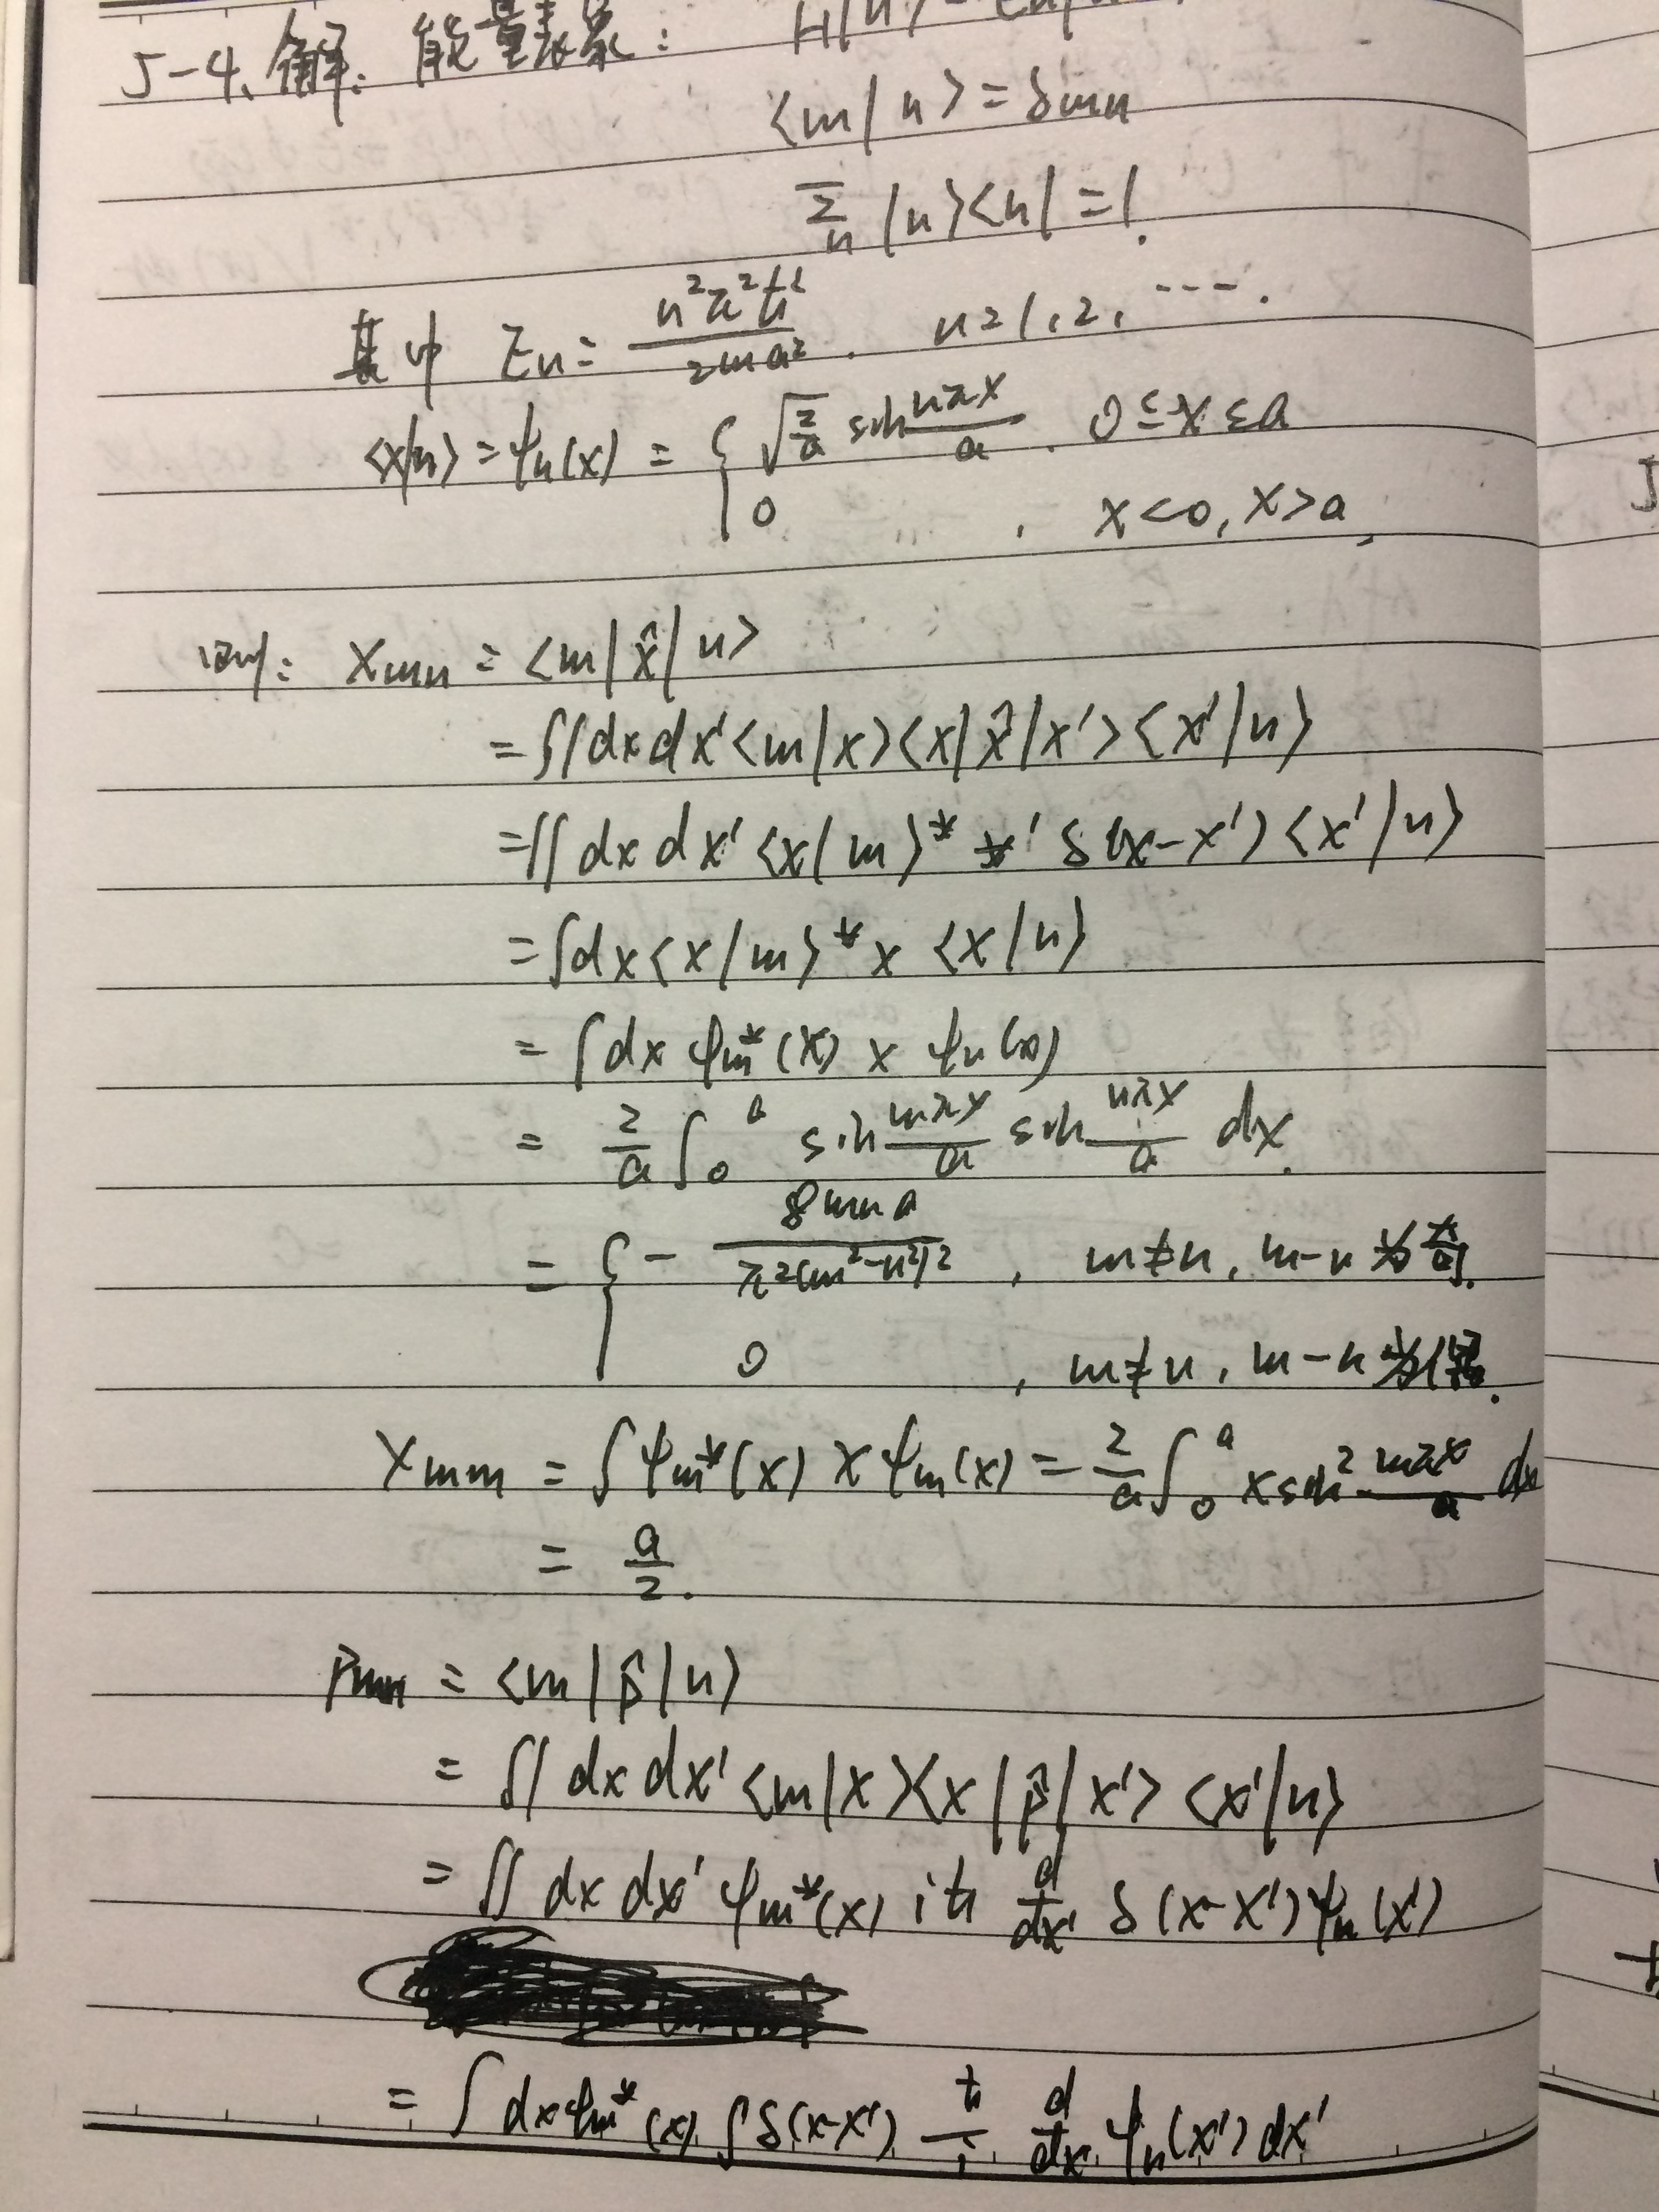 5-4、解: 能量表象: H|n⟩=En|n⟩
⟨m|n⟩=δmn
Σn |n⟩⟨n|=1.
其中 En= n²π²ħ²/2ma². n=1,2,….
⟨x|n⟩=ψn(x)= { √(2/a) sin nπx/a. 0≤x≤a
0 , x<0, x>a.
则: Xmn=⟨m|x̂|n⟩
=∬dxdx'⟨m|x⟩⟨x|x̂|x'⟩⟨x'|n⟩
=∬dxdx'⟨x|m⟩* x' δ(x-x')⟨x'|n⟩
=∫dx⟨x|m⟩* x ⟨x|n⟩
=∫dx ψm*(x) x ψn(x)
= 2/a ∫₀ᵃ sin mπx/a sin nπx/a dx.
= { - 8mna/π²(m²-n²)² , m≠n, m-n为奇.
0 , m≠n, m-n为偶.
Xmm=∫ψm*(x) x ψm(x)= 2/a ∫₀ᵃ x sin² mπx/a dx
= a/2.
Pmn=⟨m|p̂|n⟩
=∬dxdx'⟨m|x⟩⟨x|p̂|x'⟩⟨x'|n⟩
=∬dxdx' ψm*(x) iħ d/dx' δ(x-x')ψn(x')
=∫dxψm*(x)∫δ(x-x') ħ/i d/dx' ψn(x')dx'